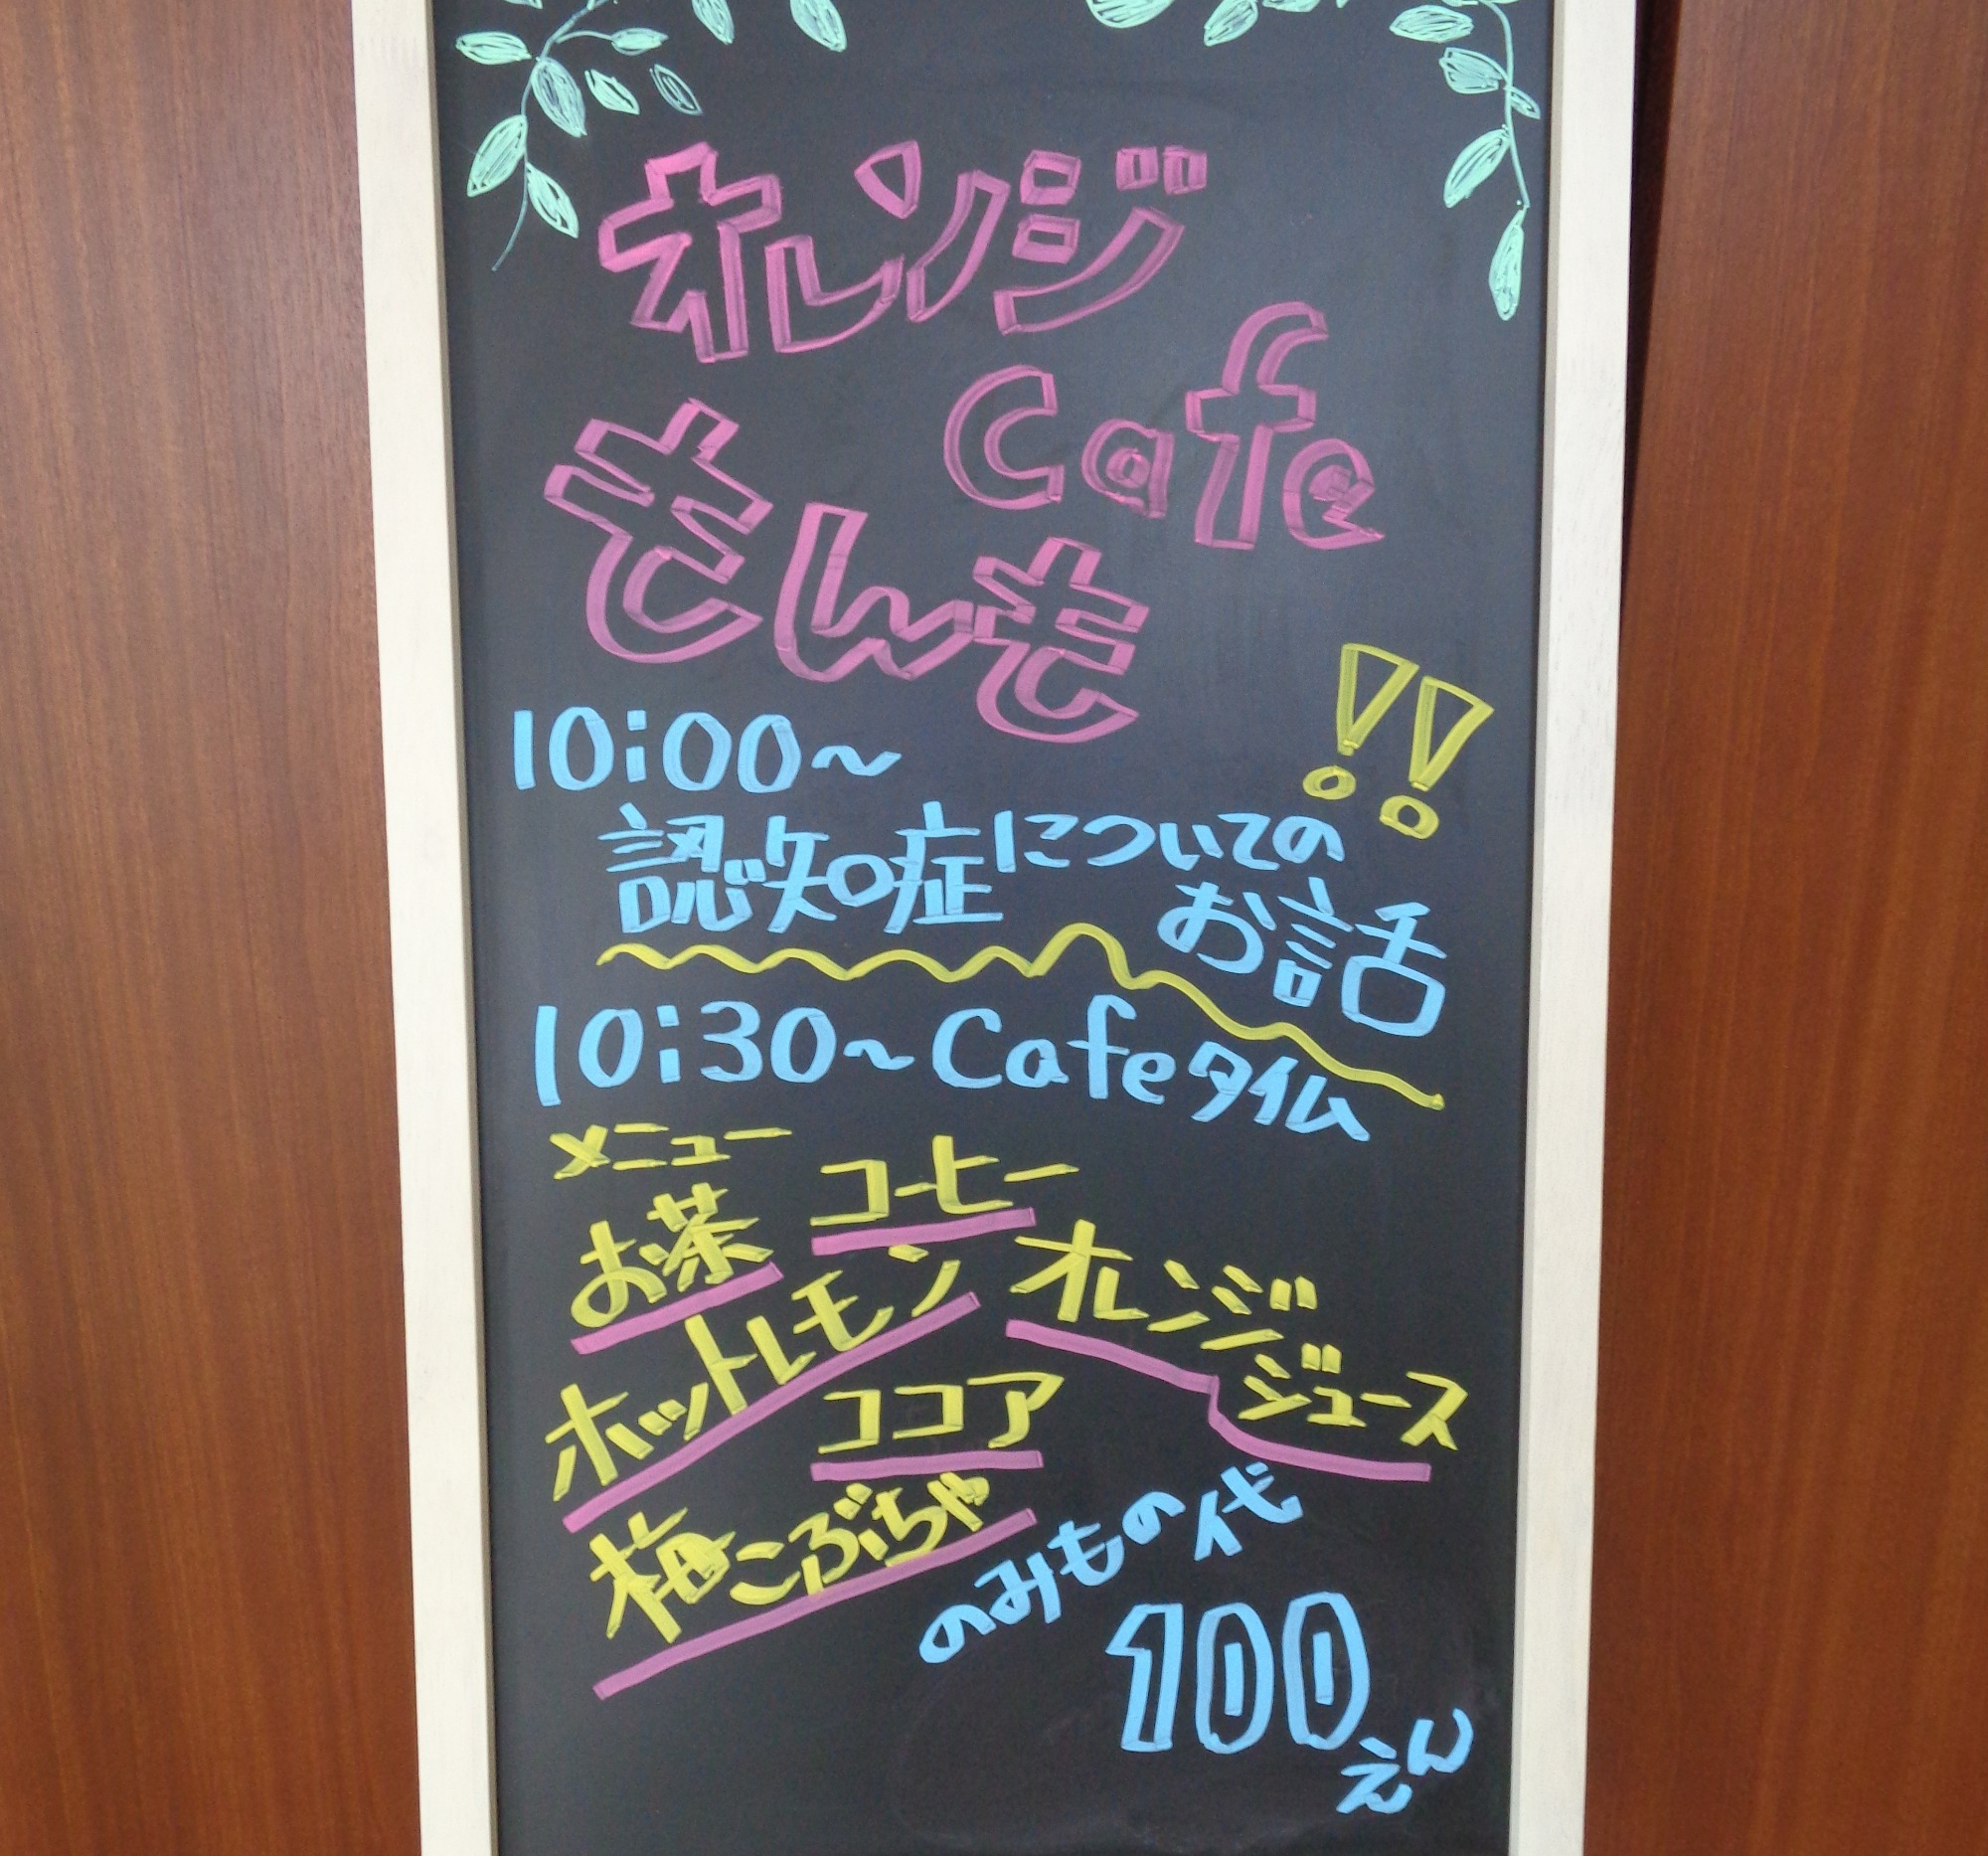 オレンジ
Cafe
きんき
!!
10:00～
認知症についての
お話
10:30～Cafeタイム
メニュー
コーヒー
お茶
オレンジ
ジュース
ホットレモン
ココア
梅こぶちゃ
のみもの代
100
えん